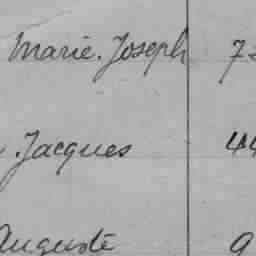 Marie. Joseph
Jacques
Auguste